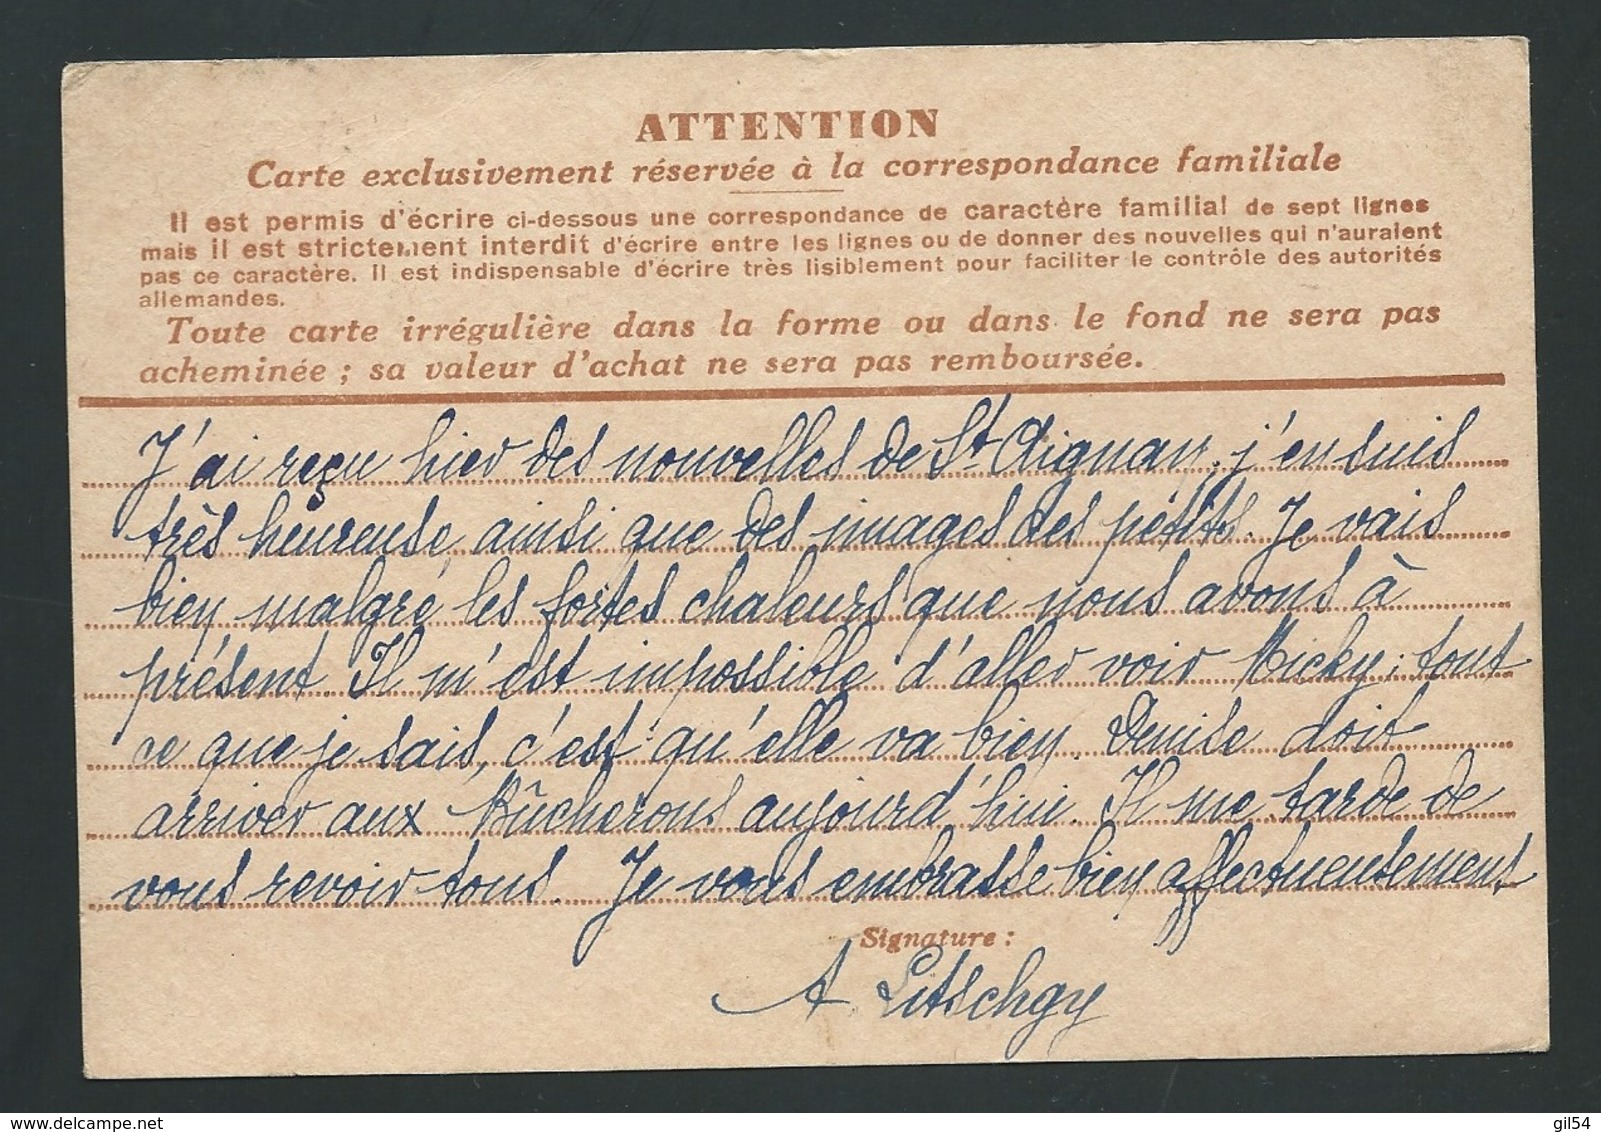 ATTENTION
Carte exclusivement réservée à la correspondance familiale
Il est permis d'écrire ci-dessous une correspondance de caractère familial de sept lignes
mais il est strictement interdit d'écrire entre les lignes ou de donner des nouvelles qui n'auraient
pas ce caractère. Il est indispensable d'écrire très lisiblement pour faciliter le contrôle des autorités
allemandes.
Toute carte irrégulière dans la forme ou dans le fond ne sera pas
acheminée ; sa valeur d'achat ne sera pas remboursée.
J'ai reçu hier des nouvelles de St Aignan, j'en suis
très heureuse, ainsi que des images des petits. Je vais
bien malgré les fortes chaleurs que nous avons à
présent. Il m'est impossible d'aller voir Micky; tout
ce que je sais, c'est qu'elle va bien. Denise doit
arriver aux Bûcherons aujourd'hui. Il me tarde de
vous revoir tous. Je vous embrasse bien affectueusement
Signature :
A Litschgy
delcampe.net
gil54